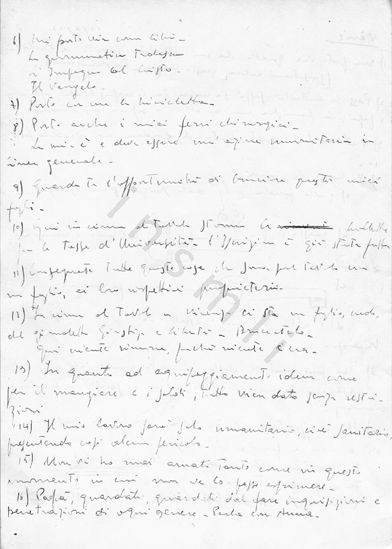 6) Mi porto via come libri -
La grammatica Tedesca
L'Impegno del Cristo -
Il Vangelo
7) Porto con me la bicicletta -
8) Porto anche i miei ferri chirurgici -
La mia è e deve essere un'azione umanitaria in
linea generale -
9) Guardate l'opportunità di bruciare questi miei
fogli -
10) Qui in cima al tavolo stanno le bollette
per la tassa d'Università. L'iscrizione è già stata fatta
11) Consegnate tutte queste cose che sono sul tavolo con
un foglio, ai loro rispettivi proprietari -
12) In cima al tavolo a Vicenza ci sta un foglio,
del giornaletto Giustizia e Libertà - Bruciatelo -
Qui niente rimane, perché niente c'era -
13) In quanto ad equipaggiamento idem come
per il mangiare e i soldi, tutto vien dato senza restri-
zioni
14) Il mio lavoro sarà solo umanitario, cioè sanitario,
presentando così alcun pericolo -
15) Non vi ho mai amati tanto come in questo
momento in cui non ve lo posso esprimere -
16) Papà, guardati, guardati dal fare inquisizioni e
penetrazioni di ogni genere - Parla con Anna -
Insmli